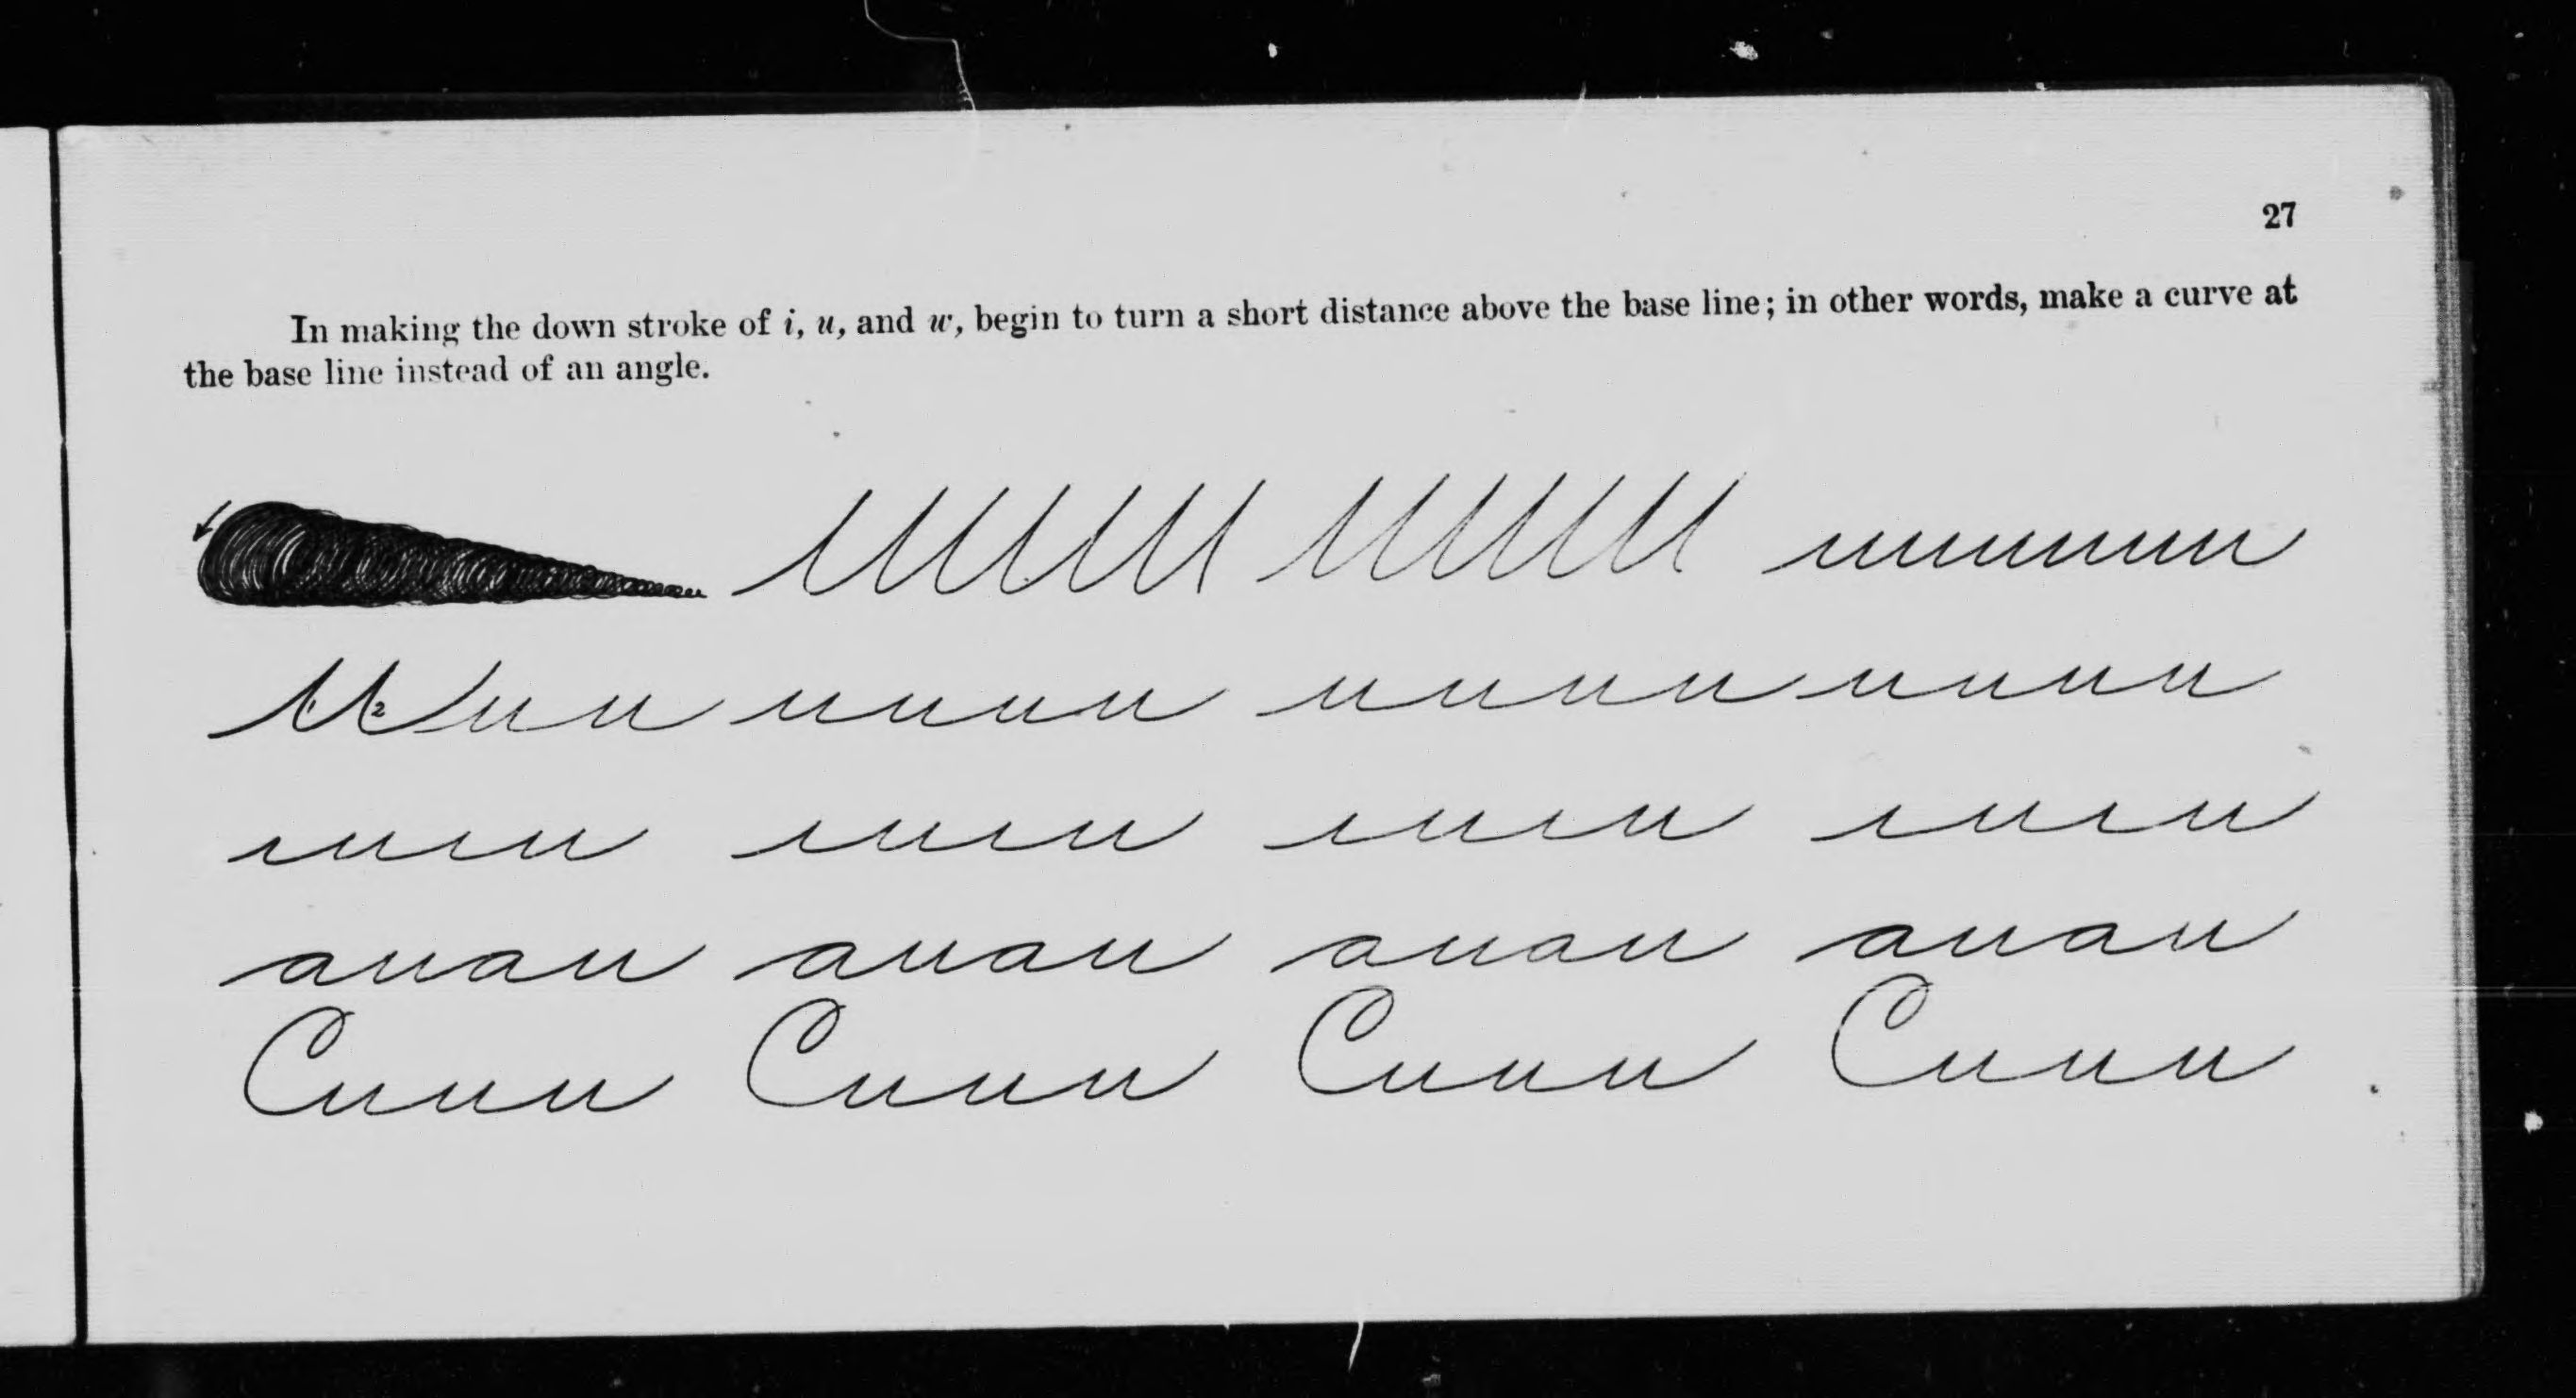 27
In making the down stroke of i, u, and w, begin to turn a short distance above the base line; in other words, make a curve at
the base line instead of an angle.
1 2 u u u u u u u u u u u u u u
iuiu iuiu iuiu iuiu
auau auau auau auau
Cuuu Cuuu Cuuu Cuuu